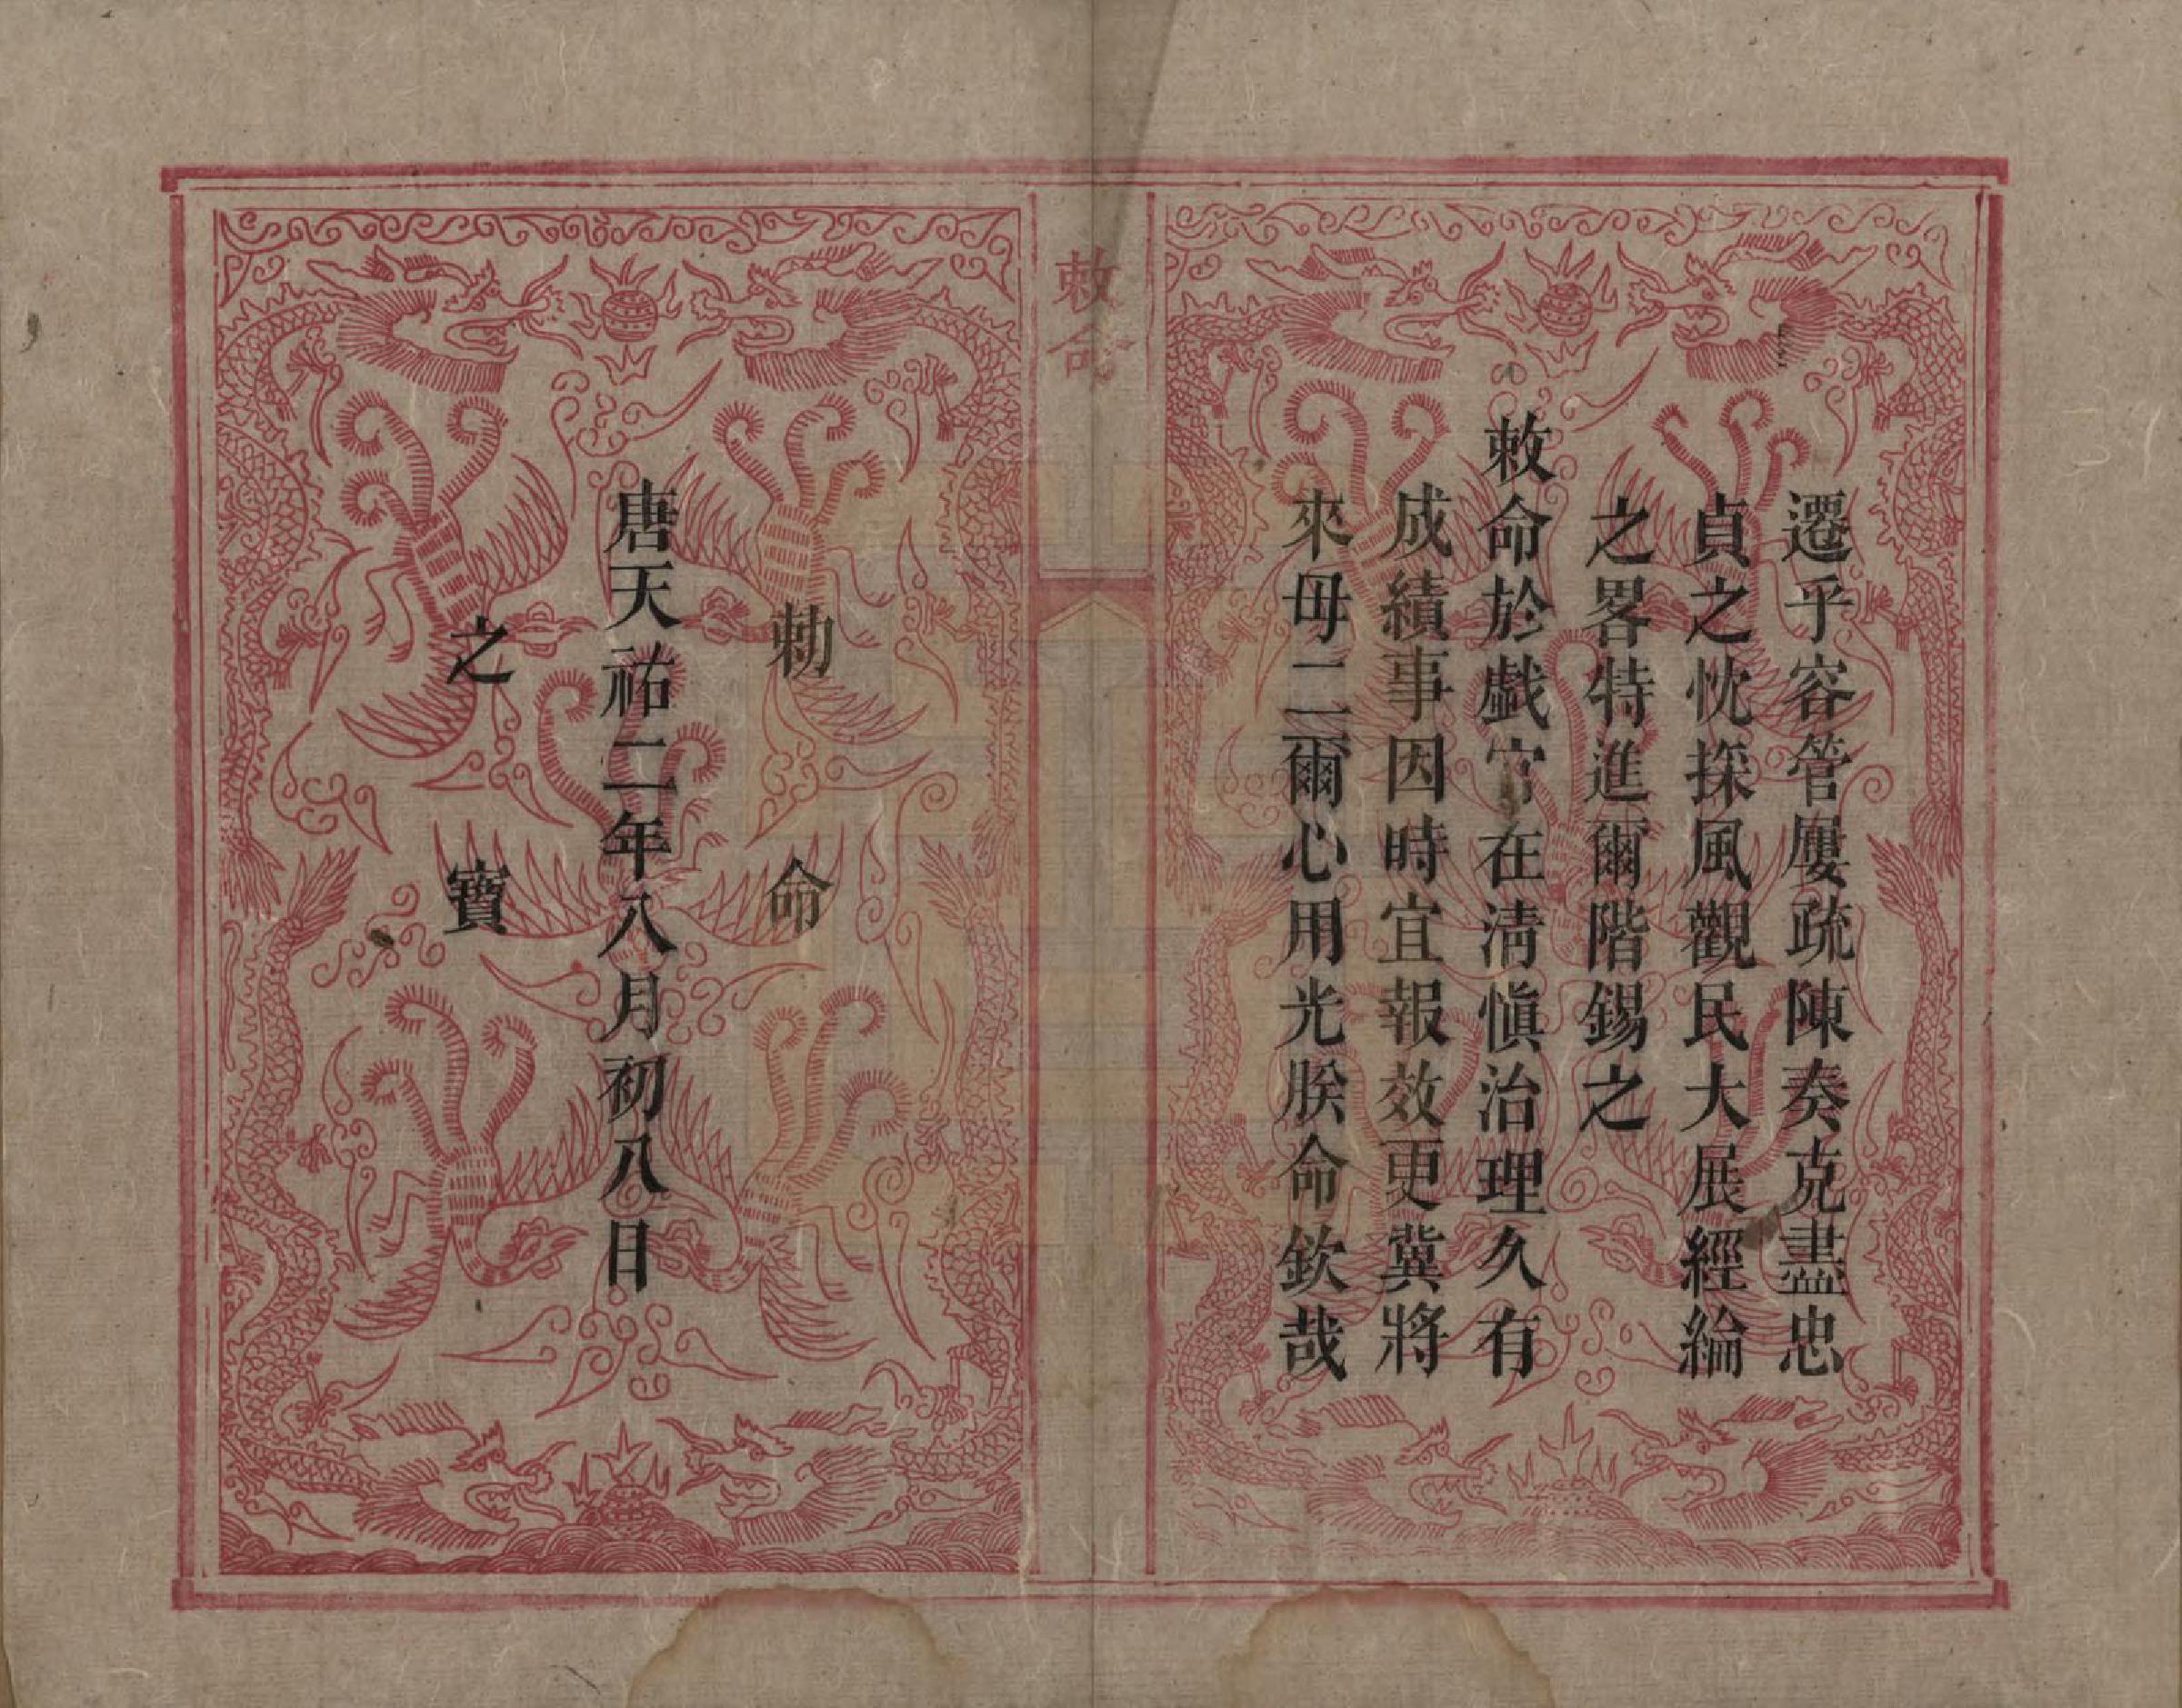 遷乎容管屢疏陳奏克盡忠
貞之忱採風觀民大展經綸
之畧特進爾階錫之
敕命於戲官在淸愼治理久有
成績事因時宜報效更冀將
來毋二爾心用光朕命欽哉
敕命
勅命
唐天祐二年八月初八日
之寶